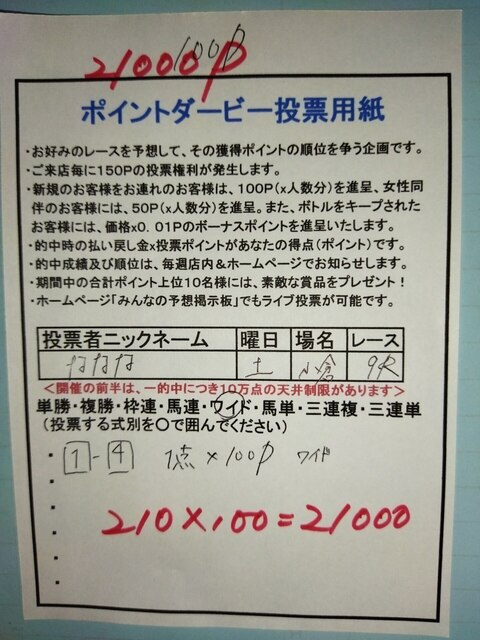 100P
21000P
ポイントダービー投票用紙
・お好みのレースを予想して、その獲得ポイントの順位を争う企画です。
・ご来店毎に150Pの投票権利が発生します。
・新規のお客様をお連れのお客様は、100P(x人数分)を進呈、女性同
伴のお客様には、50P(x人数分)を進呈。また、ボトルをキープされた
お客様には、価格x0.01Pのボーナスポイントを進呈いたします。
・的中時の払い戻し金x投票ポイントがあなたの得点(ポイント)です。
・的中成績及び順位は、毎週店内&ホームページでお知らせします。
・期間中の合計ポイント上位10名様には、素敵な賞品をプレゼント!
・ホームページ「みんなの予想掲示板」でもライブ投票が可能です。
投票者ニックネーム 曜日 場名 レース
ななな 土 小倉 9R
<開催の前半は、一的中につき10万点の天井制限があります>
単勝・複勝・枠連・馬連・ワイド・馬単・三連複・三連単
(投票する式別を〇で囲んでください)
・ 1-4 1点×100P ワイド
・
・ 210×100=21000
・
・
・